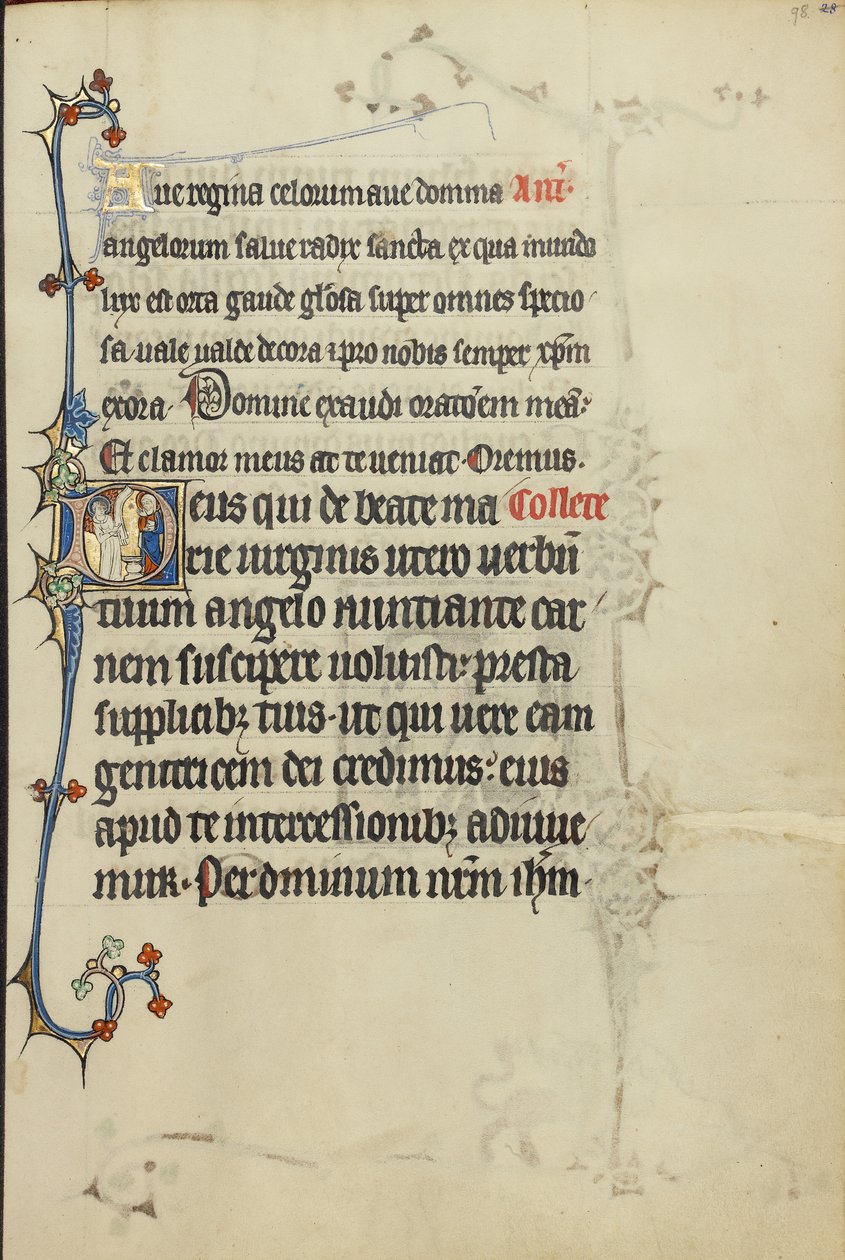 98. 28
Aue regina celorum aue domina Ant̄.
angelorum salue radix sancta ex qua mundo
lux est orta gaude gl̄osa super omnes specio
sa uale ualde decora ⁊ pro nob̄is semper xp̄m
exora. Domine exaudi oratōem meā:
Et clamor meus ad te ueniat. Oremus.
Deus qui de beate ma Collecte
rie uirginis utero uerbū
tuum angelo nuntiante car
nem suscipere uoluisti: presta
supplicibꝫ tuis. ut qui uere eam
genitricem dei credimus: eius
apud te intercessionibꝫ adiuue
mur. Per dominum nr̄m ih̄m.